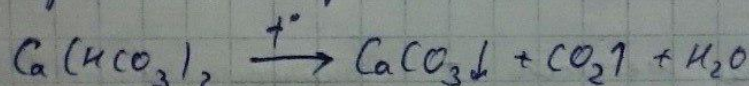 Ca(HCO₃)₂ –t°→ CaCO₃↓ + CO₂↑ + H₂O